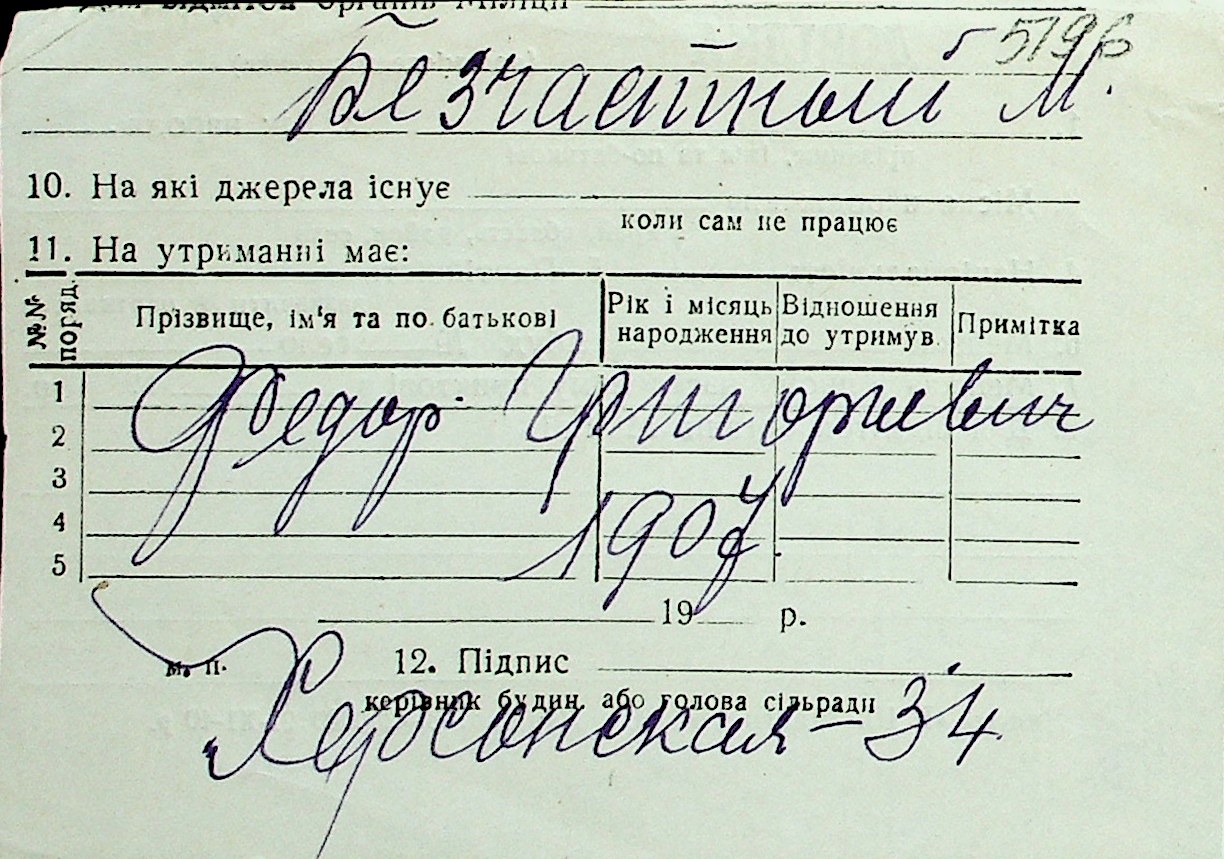 Для відміток органів міліції
5196
Безчастный М.
10. На які джерела існує
коли сам не працює
11. На утриманні має:
№№ поряд. Прізвище, ім'я та по батькові Рік і місяць народження Відношення до утримув. Примітка
1
Федор Григорьевич
2
3
4
1907
5
19 р.
м. п. 12. Підпис
керівник будин. або голова сільради
Херсонская - 34